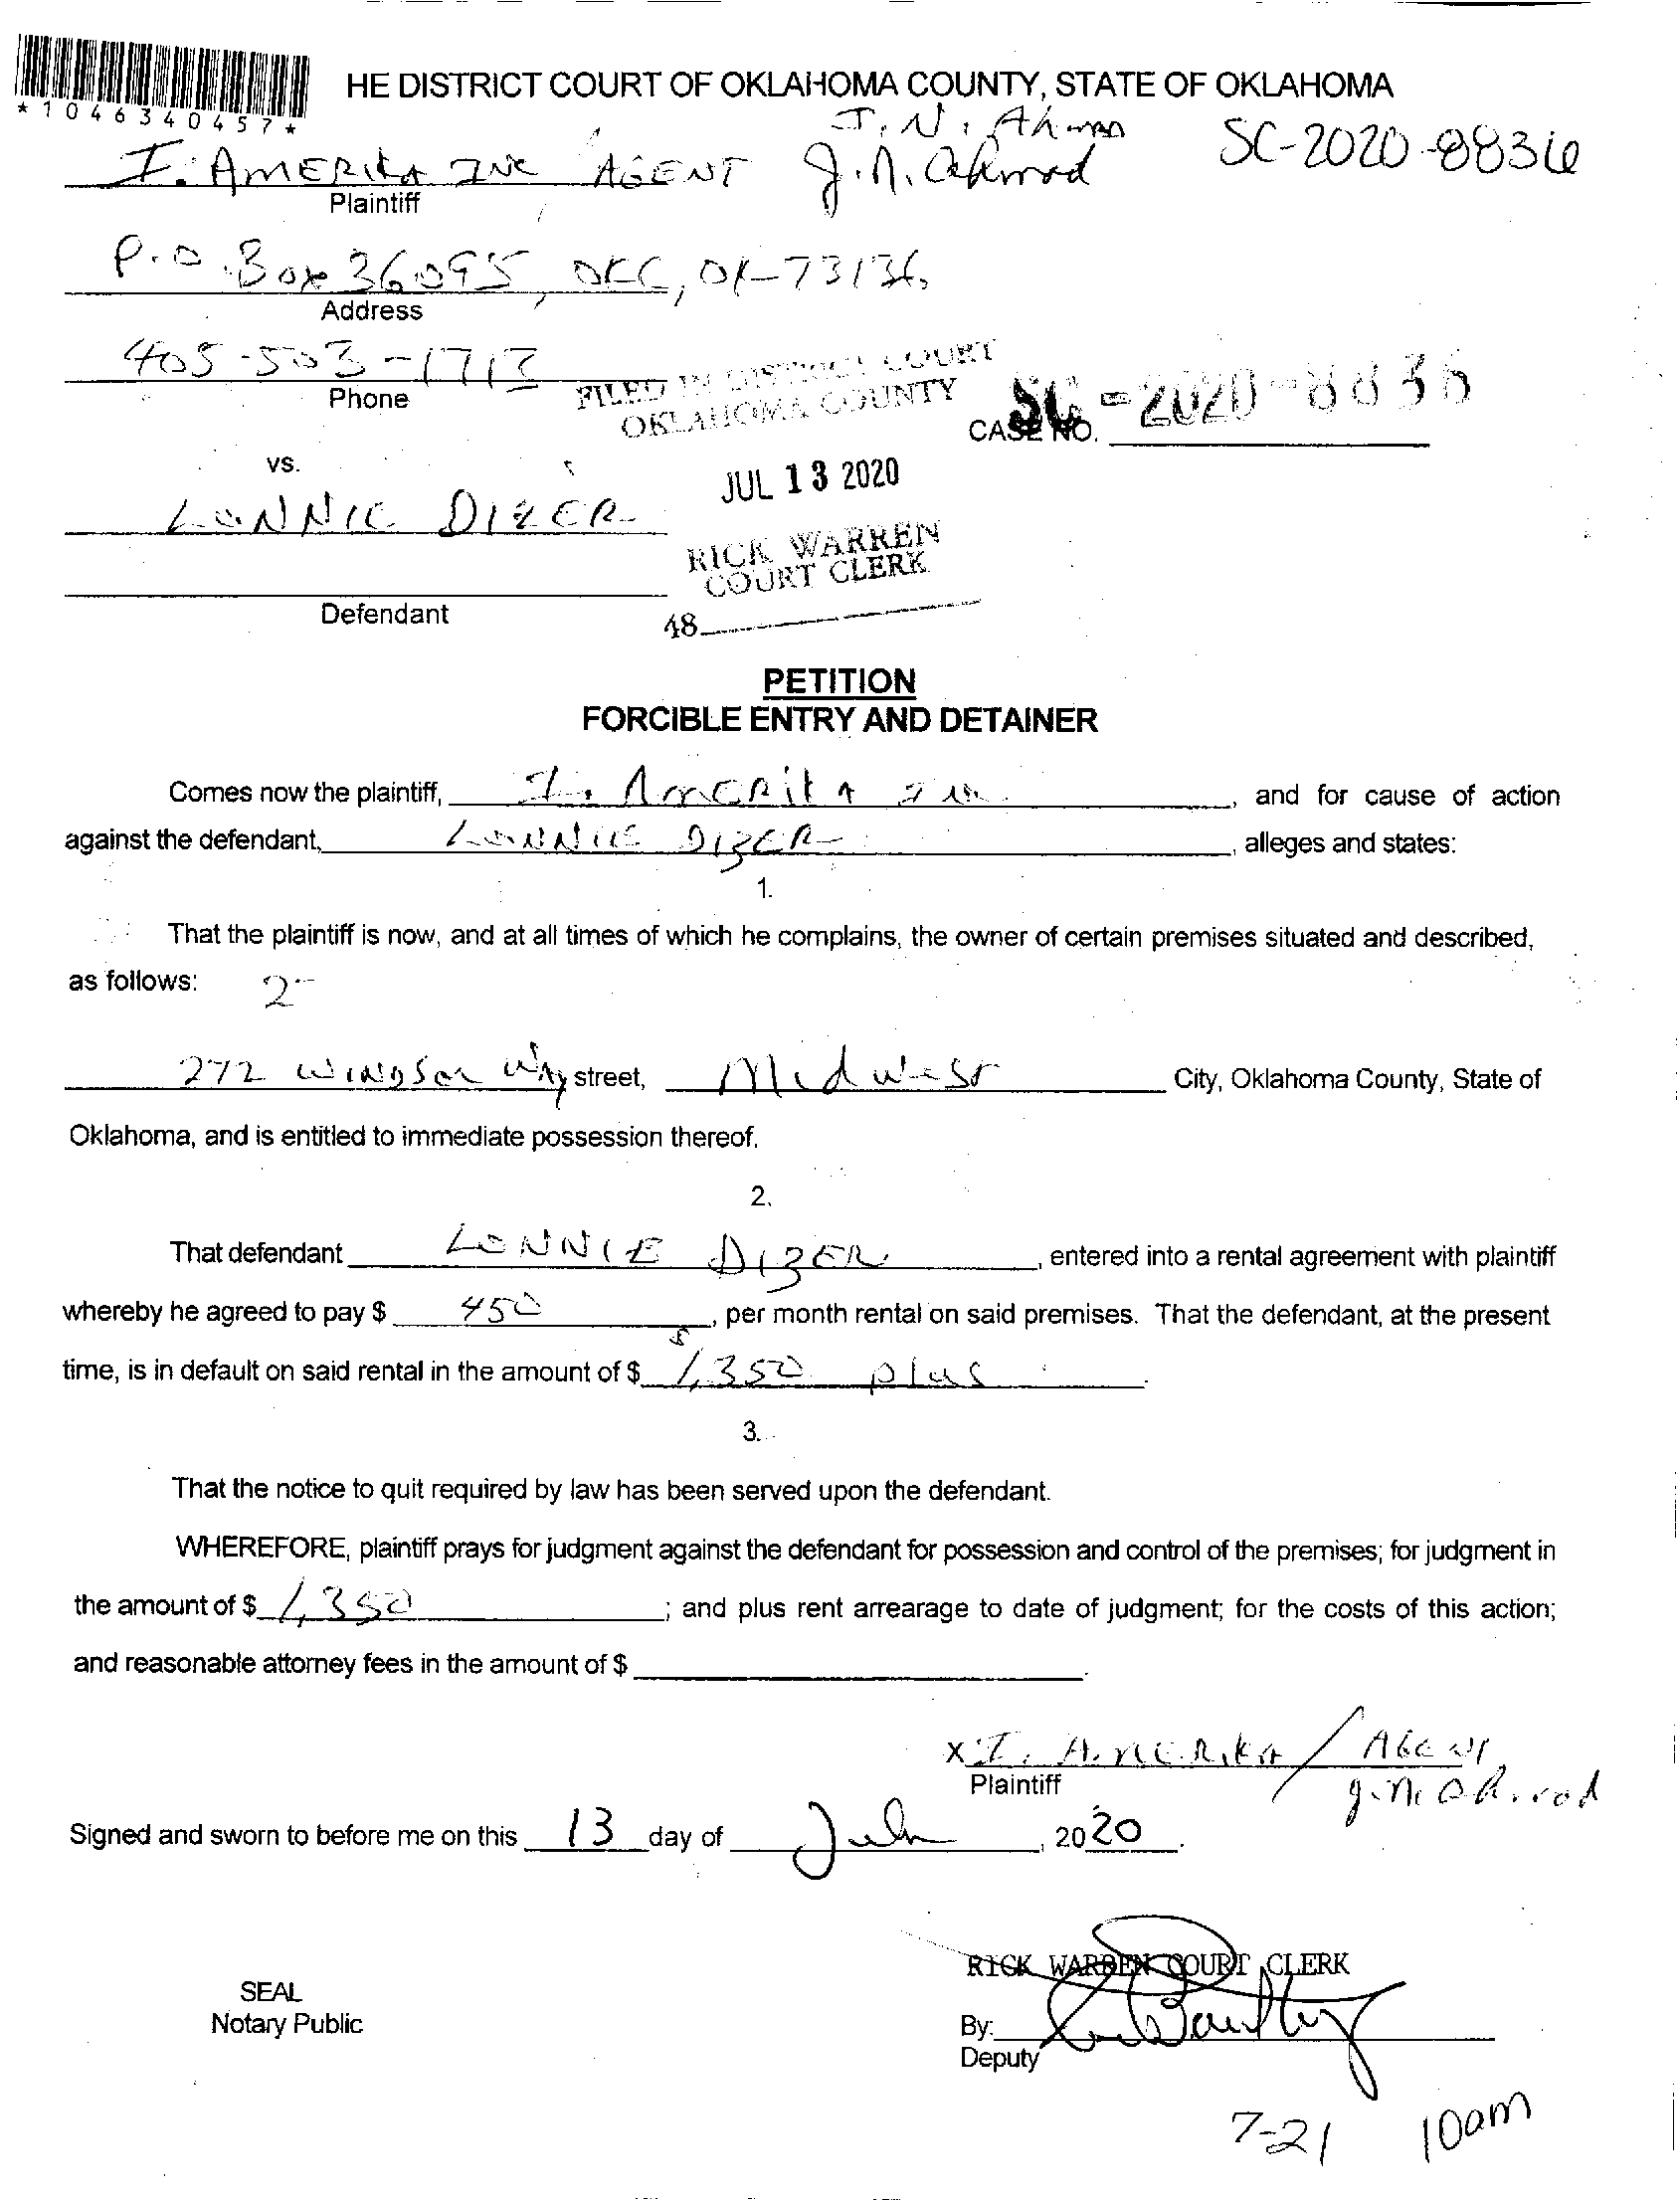 *1046340457*
HE DISTRICT COURT OF OKLAHOMA COUNTY, STATE OF OKLAHOMA
I. N. Ahmad
SC-2020-8836
I. AMERIKA INC AGENT J.N. Ahmad
Plaintiff
P.O. Box 36095, OKC, OK-73136
Address
405-503-1713
Phone
FILED IN DISTRICT COURT
OKLAHOMA COUNTY
CASE NO. SC-2020-8836
vs.
JUL 13 2020
LONNIE DIZER
RICK WARREN
COURT CLERK
Defendant
48
PETITION
FORCIBLE ENTRY AND DETAINER
Comes now the plaintiff, I. Amerika Inc. , and for cause of action
against the defendant, LONNIE DIZER , alleges and states:
1.
That the plaintiff is now, and at all times of which he complains, the owner of certain premises situated and described,
as follows: 2
272 WINDSOR WAY street, Midwest City, Oklahoma County, State of
Oklahoma, and is entitled to immediate possession thereof.
2.
That defendant LONNIE DIZER , entered into a rental agreement with plaintiff
whereby he agreed to pay $ 450 , per month rental on said premises. That the defendant, at the present
time, is in default on said rental in the amount of $ $1,350 plus .
3.
That the notice to quit required by law has been served upon the defendant.
WHEREFORE, plaintiff prays for judgment against the defendant for possession and control of the premises; for judgment in
the amount of $ 1,350 ; and plus rent arrearage to date of judgment; for the costs of this action;
and reasonable attorney fees in the amount of $ .
X I. AMERIKA / AGENT
Plaintiff
J.N. Ahmad
Signed and sworn to before me on this 13 day of July , 2020 .
RICK WARREN COURT CLERK
SEAL
Notary Public
By:
Deputy
7-21 10am